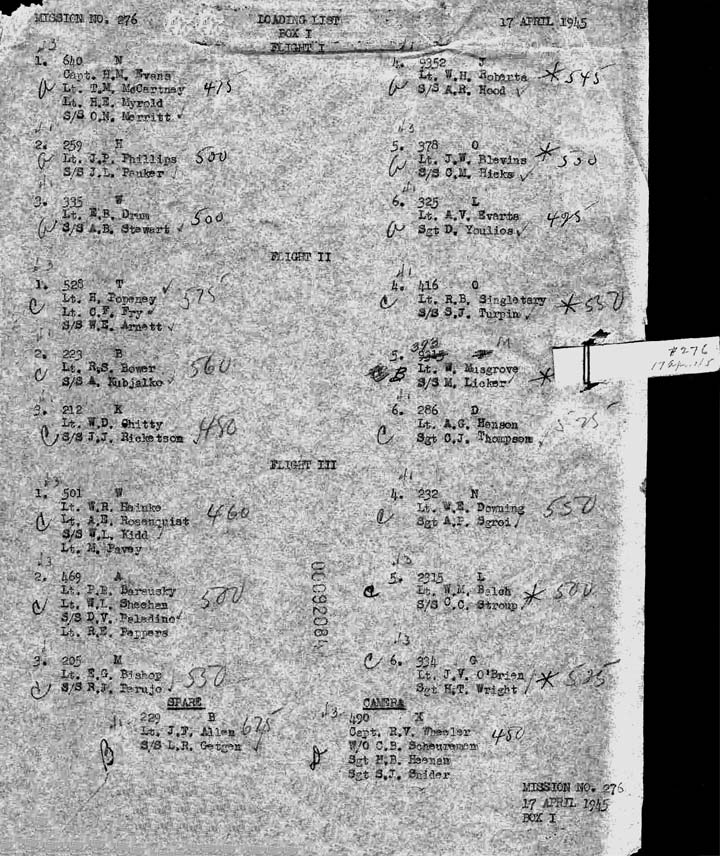 MISSION NO. 276
LOADING LIST
17 APRIL 1945
BOX I
FLIGHT I
1. 640 N
Capt. H.M. Evans
Lt. T.M. McCartney 475
Lt. H.E. Myrold
S/S O.N. Merritt
2. 259 H
Lt. J.P. Phillips 500
S/S J.L. Pauker
3. 335 W
Lt. E.B. Drum 500
S/S A.B. Stewart
4. 9352 J
Lt. W.H. Roberts * 545
S/S A.R. Hood
5. 378 O
Lt. J.W. Blevins * 530
S/S C.M. Hicks
6. 325 L
Lt. A.V. Evarts 495
Sgt D. Youlios
FLIGHT II
1. 528 T
Lt. H. Popeney 575
Lt. C.F. Fry
S/S W.E. Arnett
2. 223 B
C Lt. R.S. Bower 560
S/S A. Kubjalko
3. 212 K
Lt. W.D. Chitty 480
C S/S J.J. Ricketson
4. 416 O
Lt. R.B. Singletary * 550
C S/S S.J. Turpin
5. 393 M
Lt. W. Musgrove
B S/S M. Licker *
6. 286 D
Lt. A.G. Henson 525
C Sgt C.J. Thompson
#276
FLIGHT III
1. 501 W
Lt. W.R. Hainke
C Lt. A.E. Rosenquist 460
S/S W.L. Kidd
Lt. M. Pavey
2. 469 A
Lt. P.E. Barausky 500
C Lt. W.L. Sheehan
S/S D.V. Paladino
Lt. R.E. Peppers
3. 205 M
Lt. E.G. Bishop 550
C S/S R.J. Parujo
4. 232 N
Lt. W.E. Downing 550
C Sgt A.P. Sgroi
5. 2915 L
C Lt. W.M. Balch * 500
S/S C.C. Stroup
C 6. 334 G
Lt. J.V. O'Brien * 525
Sgt H.T. Wright
00092084
SPARE
229 B
Lt. J.F. Allen 675
B S/S L.R. Getgen
CAMERA
490 X
Capt. R.V. Wheeler 480
W/O C.B. Scheureman
Sgt H.B. Heenan
Sgt S.J. Snider
MISSION NO. 276
17 APRIL 1945
BOX I